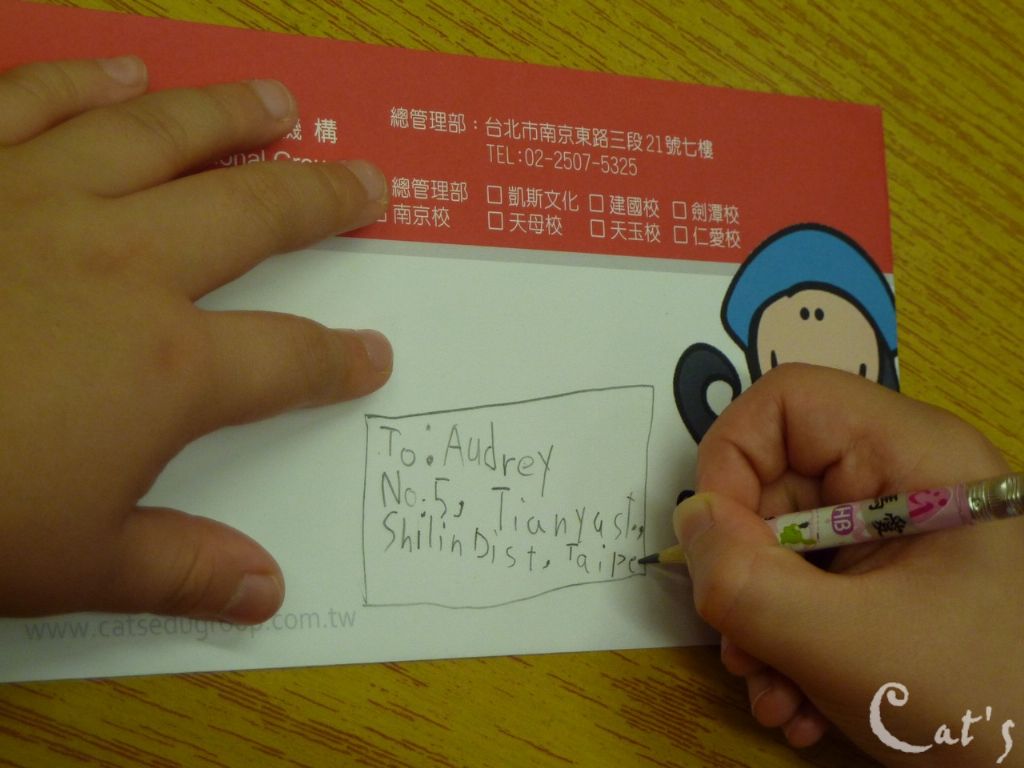 機 構
總管理部：台北市南京東路三段21號七樓
TEL:02-2507-5325
總管理部 □ 凱斯文化 □ 建國校 □ 劍潭校
□ 南京校 □ 天母校 □ 天玉校 □ 仁愛校
To: Audrey
No.5, Tianyu st.,
Shilin Dist, Taipe
www.catsedugroup.com.tw
HB
Cat's